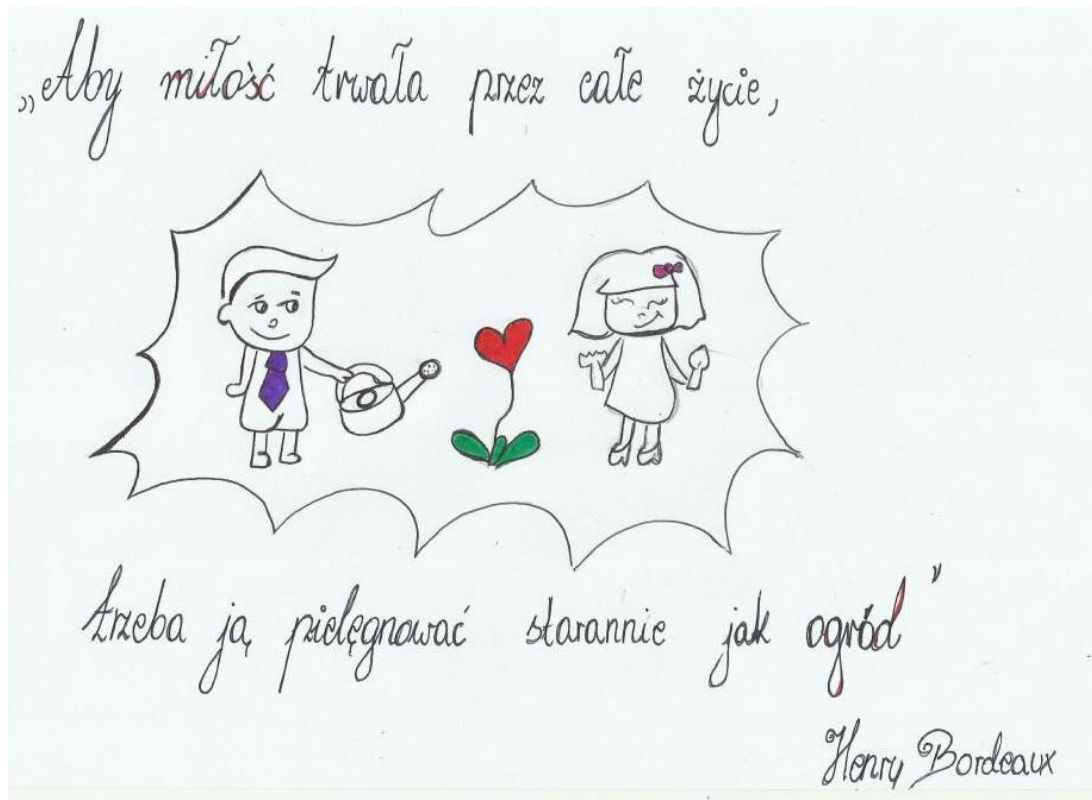 „Aby miłość trwała przez całe życie,
trzeba ją pielęgnować starannie jak ogród”
Henry Bordeaux